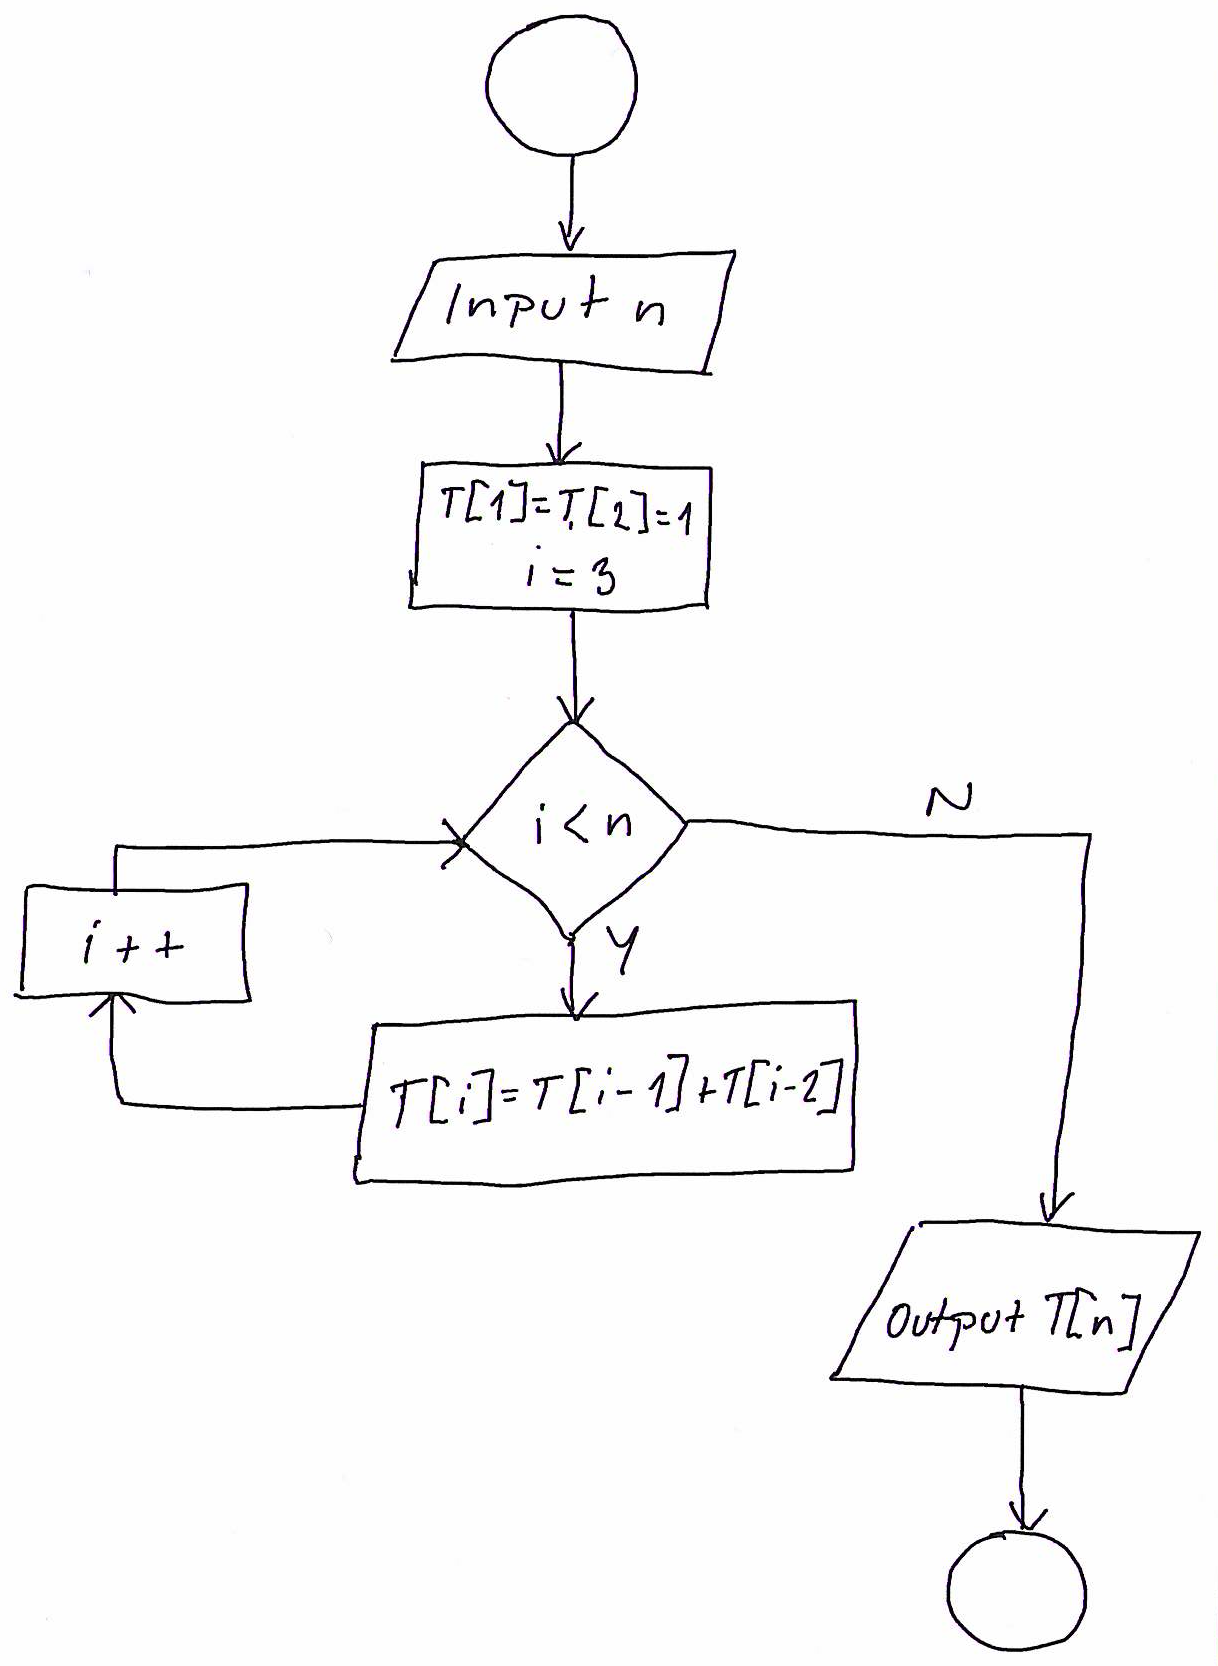 Input n
T[1]=T[2]=1
i = 3
i < n
N
Y
i ++
T[i]=T[i-1]+T[i-2]
Output T[n]